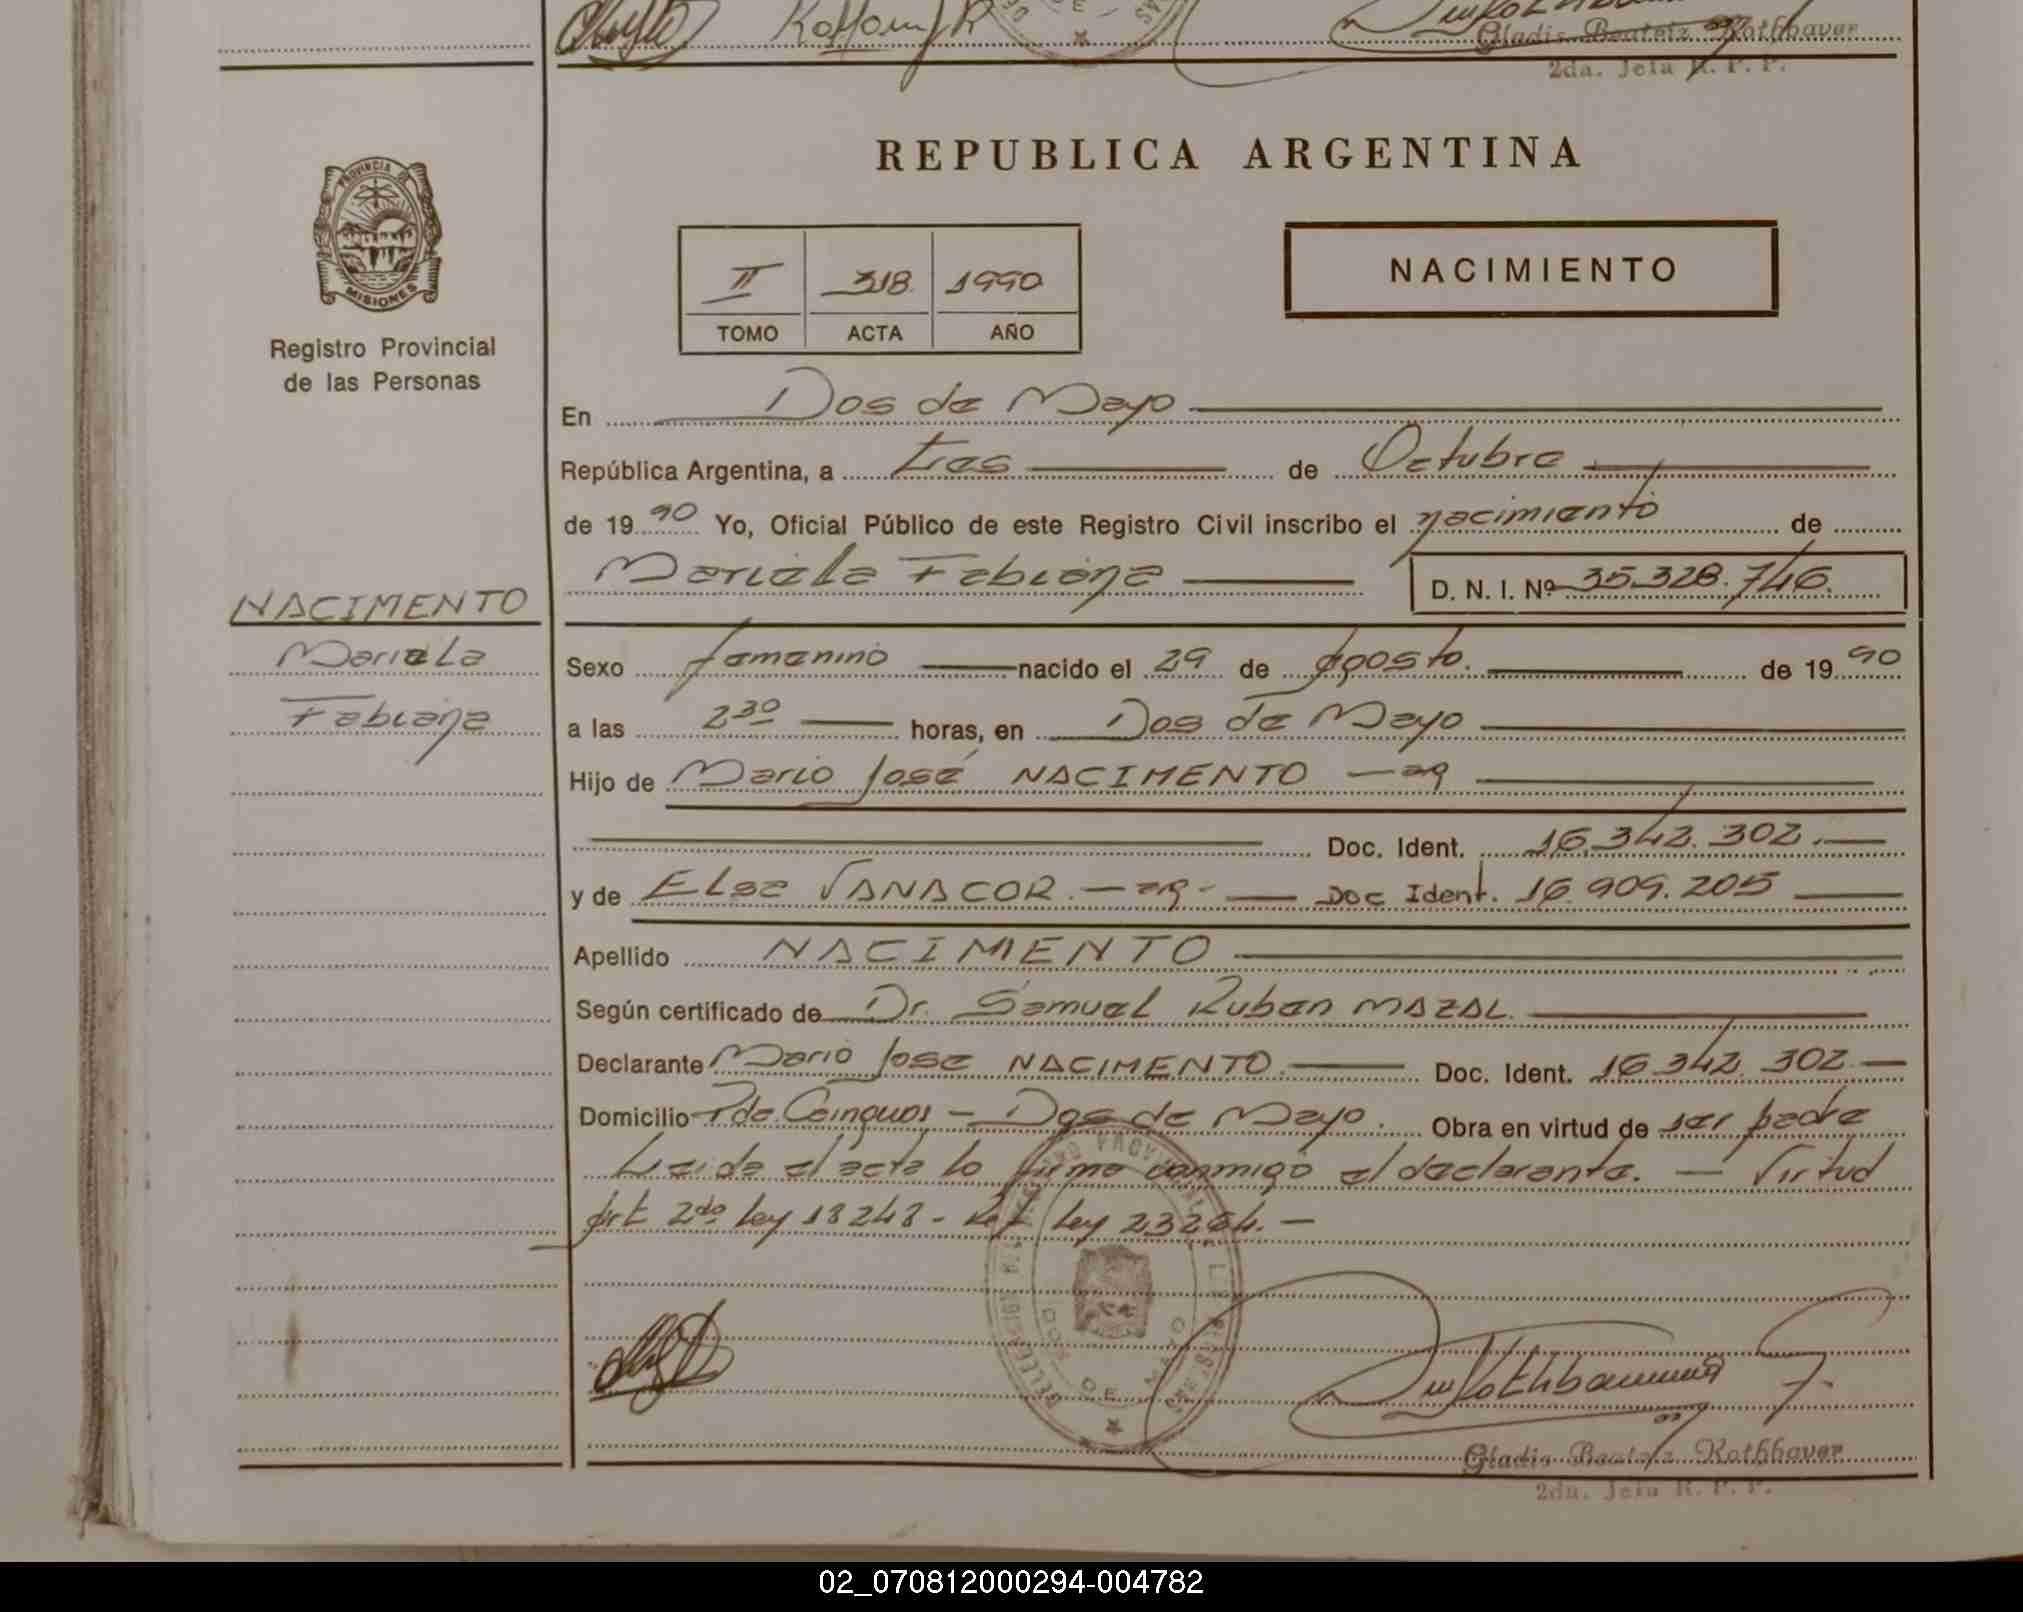 Gladis Beatriz Rothbaver
2da. Jefa R. P. P.
PROVINCIA DE
MISIONES
Registro Provincial
de las Personas
NACIMENTO
Mariela
Fabiana
REPUBLICA ARGENTINA
II 318 1990
TOMO ACTA AÑO
NACIMIENTO
En Dos de Mayo
República Argentina, a tres de Octubre
de 1990 Yo, Oficial Público de este Registro Civil inscribo el nacimiento de
Mariela Fabiana D. N. I. Nº 35.328.746.
Sexo femenino nacido el 29 de Agosto. de 1990
a las 2 30 horas, en Dos de Mayo
Hijo de Mario José NACIMENTO — ag
Doc. Ident. 16.342.302.—
y de Elsa VANACOR. — ag - Doc Ident. 16.909.205
Apellido NACIMIENTO
Según certificado de Dr. Samuel Ruben MAZAL.
Declarante Mario José NACIMENTO. Doc. Ident. 16.342.302.—
Domicilio Pde. Cainguas - Dos de Mayo. Obra en virtud de ser padre
Leida el acta lo firma conmigo el declarante. — Virtud
Art 2do Ley 18248 - Ley 23264. —
Gladis Beatriz Rothbaver
2da. Jefa R. P. P.
02_070812000294-004782